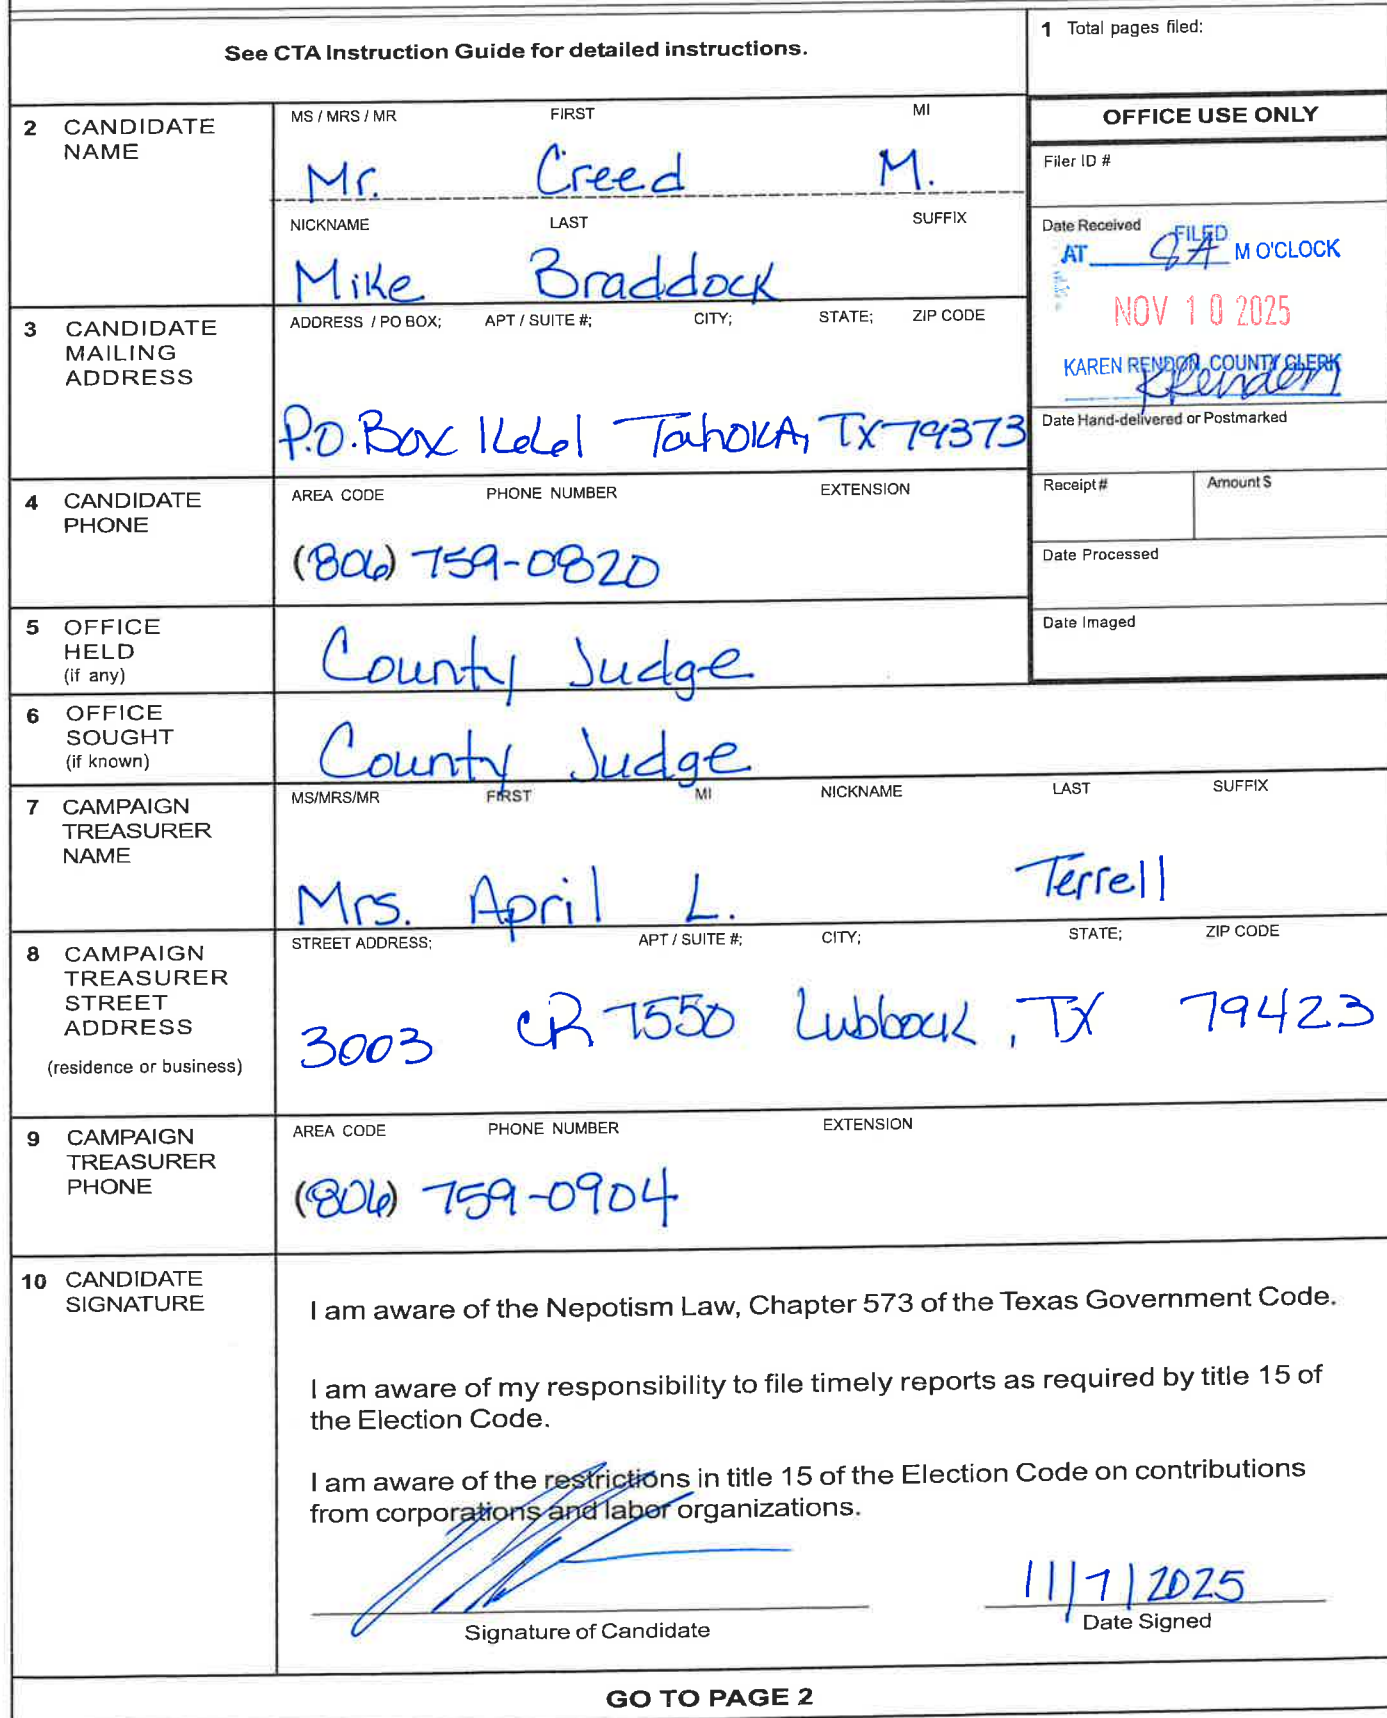 See CTA Instruction Guide for detailed instructions.
1 Total pages filed:
2 CANDIDATE NAME
MS / MRS / MR FIRST MI
Mr. Creed M.
NICKNAME LAST SUFFIX
Mike Braddock
OFFICE USE ONLY
Filer ID #
Date Received
FILED
AT 9A M O'CLOCK
NOV 10 2025
KAREN RENDON, COUNTY CLERK
KRendon
Date Hand-delivered or Postmarked
Receipt # Amount $
Date Processed
Date Imaged
3 CANDIDATE MAILING ADDRESS
ADDRESS / PO BOX; APT / SUITE #; CITY; STATE; ZIP CODE
P.O. Box 1661 Tahoka, Tx 79373
4 CANDIDATE PHONE
AREA CODE PHONE NUMBER EXTENSION
(806) 759-0820
5 OFFICE HELD (if any)
County Judge
6 OFFICE SOUGHT (if known)
County Judge
7 CAMPAIGN TREASURER NAME
MS/MRS/MR FIRST MI NICKNAME LAST SUFFIX
Mrs. April L. Terrell
8 CAMPAIGN TREASURER STREET ADDRESS
(residence or business)
STREET ADDRESS; APT / SUITE #; CITY; STATE; ZIP CODE
3003 CR 7550 Lubbock, TX 79423
9 CAMPAIGN TREASURER PHONE
AREA CODE PHONE NUMBER EXTENSION
(806) 759-0904
10 CANDIDATE SIGNATURE
I am aware of the Nepotism Law, Chapter 573 of the Texas Government Code.
I am aware of my responsibility to file timely reports as required by title 15 of
the Election Code.
I am aware of the restrictions in title 15 of the Election Code on contributions
from corporations and labor organizations.
11/7/2025
Signature of Candidate Date Signed
GO TO PAGE 2